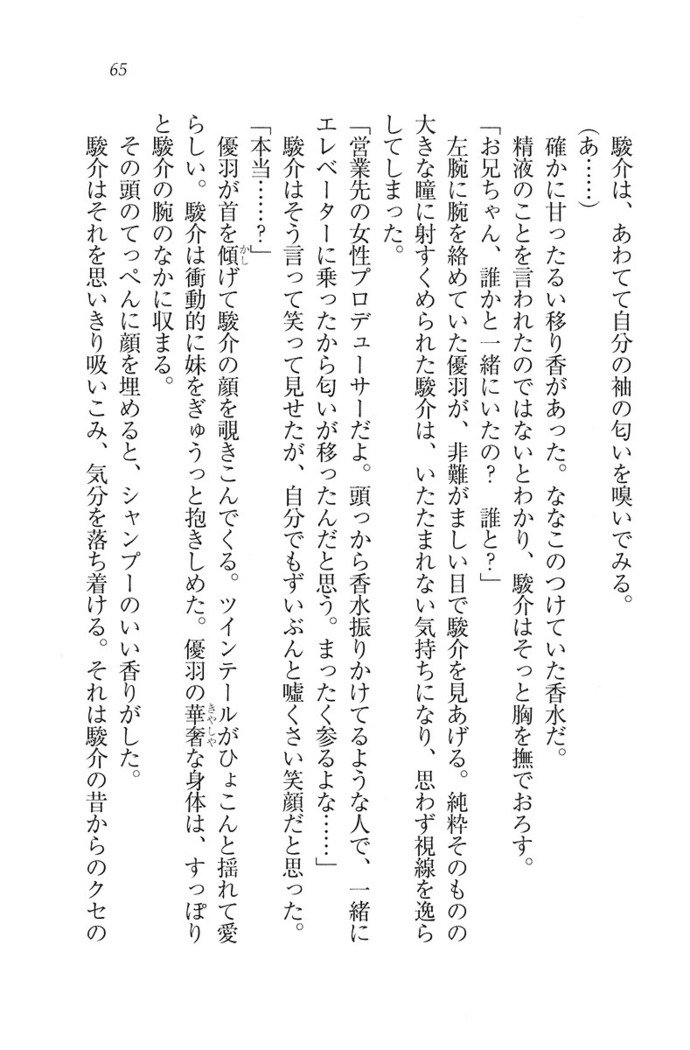 65
駿介は、あわてて自分の袖の匂いを嗅いでみる。
(あ……)
確かに甘ったるい移り香があった。ななこのつけていた香水だ。
精液のことを言われたのではないとわかり、駿介はそっと胸を撫でおろす。
「お兄ちゃん、誰かと一緒にいたの? 誰と?」
左腕に腕を絡めていた優羽が、非難がましい目で駿介を見あげる。純粋そのものの
大きな瞳に射すくめられた駿介は、いたたまれない気持ちになり、思わず視線を逸ら
してしまった。
「営業先の女性プロデューサーだよ。頭っから香水振りかけてるような人で、一緒に
エレベーターに乗ったから匂いが移ったんだと思う。まったく参るよな……」
駿介はそう言って笑って見せたが、自分でもずいぶんと嘘くさい笑顔だと思った。
「本当……?」
優羽が首を傾かしげて駿介の顔を覗きこんでくる。ツインテールがひょこんと揺れて愛
らしい。駿介は衝動的に妹をぎゅうっと抱きしめた。優羽の華奢きやしやな身体は、すっぽり
と駿介の腕のなかに収まる。
その頭のてっぺんに顔を埋めると、シャンプーのいい香りがした。
駿介はそれを思いきり吸いこみ、気分を落ち着ける。それは駿介の昔からのクセの